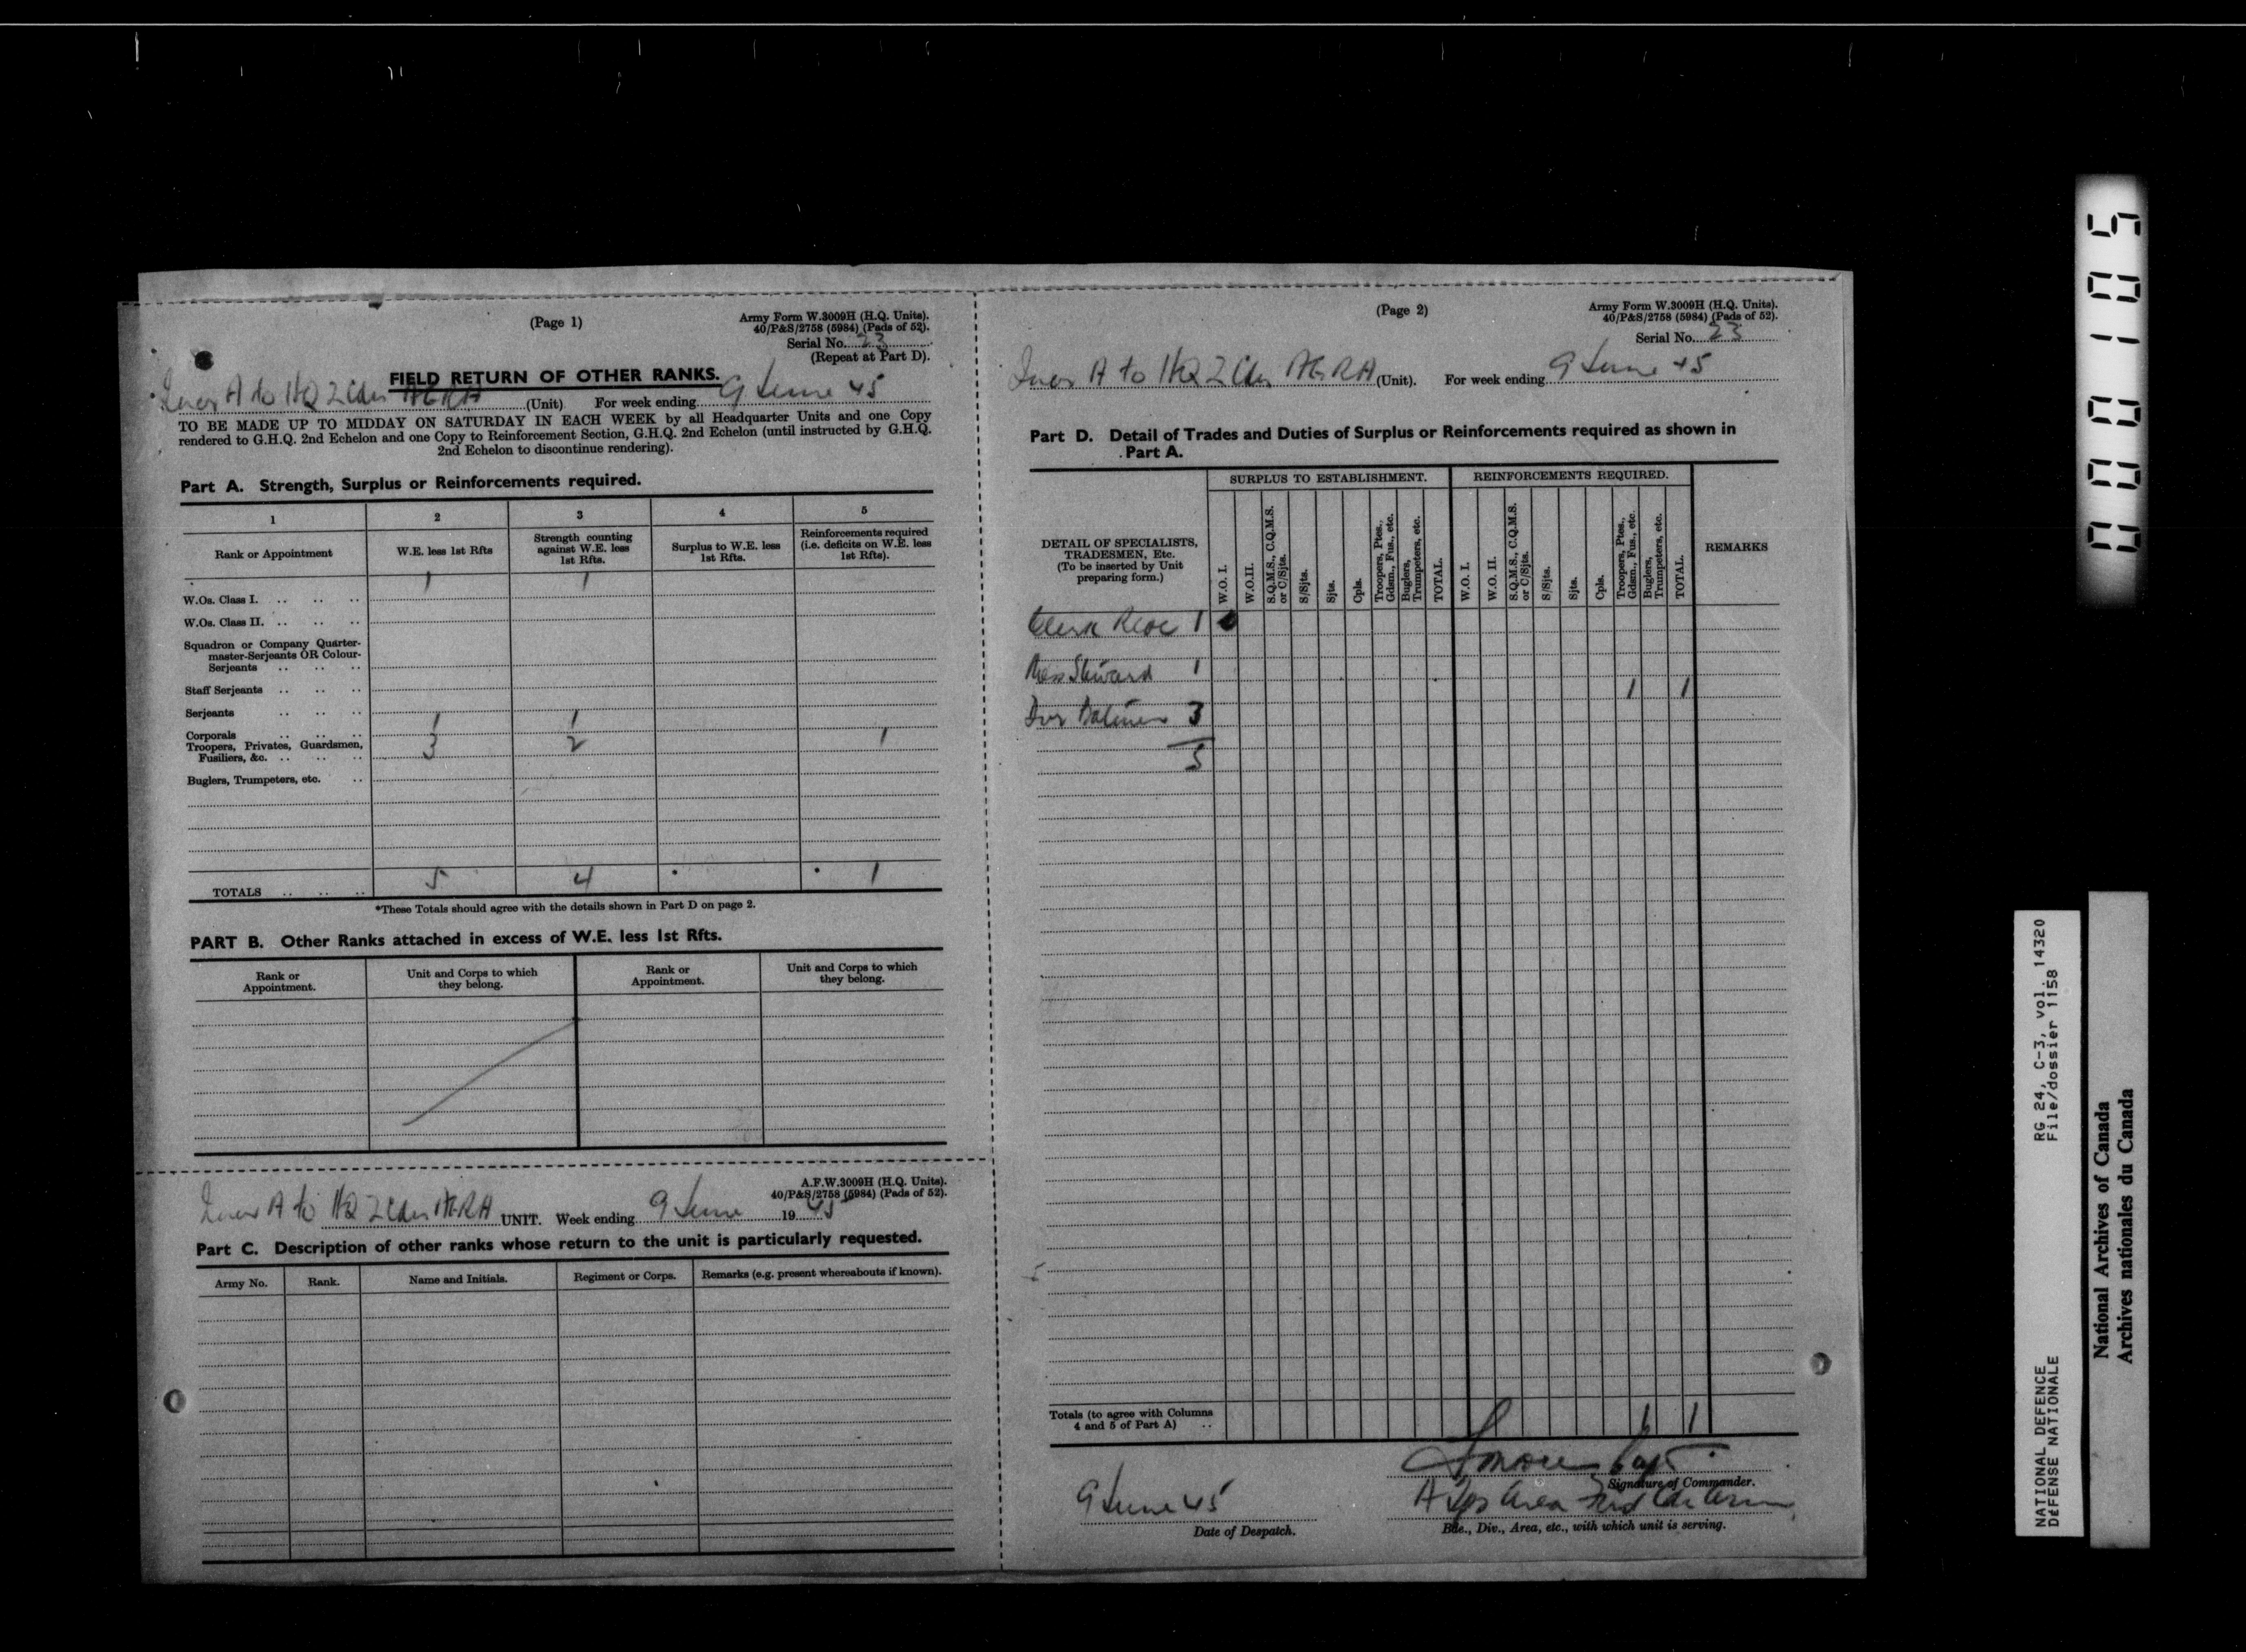 (Page 1)
Army Form W.3009H (H.Q. Units).
40/P&S/2758 (5984) (Pads of 52).
Serial No. 23
(Repeat at Part D).
FIELD RETURN OF OTHER RANKS.
A to HQ 2 Cdn AGRA (Unit) For week ending 9 June 45
TO BE MADE UP TO MIDDAY ON SATURDAY IN EACH WEEK by all Headquarter Units and one Copy
rendered to G.H.Q. 2nd Echelon and one Copy to Reinforcement Section, G.H.Q. 2nd Echelon (until instructed by G.H.Q.
2nd Echelon to discontinue rendering).
Part A. Strength, Surplus or Reinforcements required.
1 2 3 4 5
Rank or Appointment
W.E. less 1st Rfts
Strength counting against W.E. less 1st Rfts.
Surplus to W.E. less 1st Rfts.
Reinforcements required (i.e. deficits on W.E. less 1st Rfts).
1 1
W.Os. Class I. .. .. ..
W.Os. Class II. .. .. ..
Squadron or Company Quarter-
master-Serjeants OR Colour-
Serjeants .. .. ..
Staff Serjeants .. .. ..
Serjeants .. .. ..
1 1
Corporals .. .. ..
Troopers, Privates, Guardsmen, 3 2 1
Fusiliers, &c. .. .. ..
Buglers, Trumpeters, etc. ..
TOTALS .. .. .. 5 4 1
*These Totals should agree with the details shown in Part D on page 2.
PART B. Other Ranks attached in excess of W.E. less 1st Rfts.
Rank or Appointment.
Unit and Corps to which they belong.
Rank or Appointment.
Unit and Corps to which they belong.
A.F.W.3009H (H.Q. Units).
40/P&S/2758 (5984) (Pads of 52).
A to HQ 2 Cdn AGRA UNIT. Week ending 9 June 19 45
Part C. Description of other ranks whose return to the unit is particularly requested.
Army No. Rank. Name and Initials. Regiment or Corps. Remarks (e.g. present whereabouts if known).
(Page 2)
Army Form W.3009H (H.Q. Units).
40/P&S/2758 (5984) (Pads of 52).
Serial No. 23
A to HQ 2 Cdn AGRA (Unit). For week ending 9 June 45
Part D. Detail of Trades and Duties of Surplus or Reinforcements required as shown in
Part A.
DETAIL OF SPECIALISTS, TRADESMEN, Etc.
(To be inserted by Unit preparing form.)
SURPLUS TO ESTABLISHMENT.
W.O. I.
W.O.II.
S.Q.M.S., C.Q.M.S. or C/Sjts.
S/Sjts.
Sjts.
Cpls.
Troopers, Ptes., Gdsm., Fus., etc.
Buglers, Trumpeters, etc.
TOTAL.
REINFORCEMENTS REQUIRED.
W.O. I.
W.O. II.
S.Q.M.S., C.Q.M.S. or C/Sjts.
S/Sjts.
Sjts.
Cpls.
Troopers, Ptes., Gdsm., Fus., etc.
Buglers, Trumpeters, etc.
TOTAL.
REMARKS
Clerk 1
Mess Steward 1
1 1
Dvr Batmen 3
5
Totals (to agree with Columns
4 and 5 of Part A) .. 1 1
Capt.
Signature of Commander.
9 June 45
Date of Despatch.
A Area
Bde., Div., Area, etc., with which unit is serving.
000105
RG 24, C-3, vol. 14320
File/dossier 1158
NATIONAL DEFENCE
DÉFENSE NATIONALE
National Archives of Canada
Archives nationales du Canada